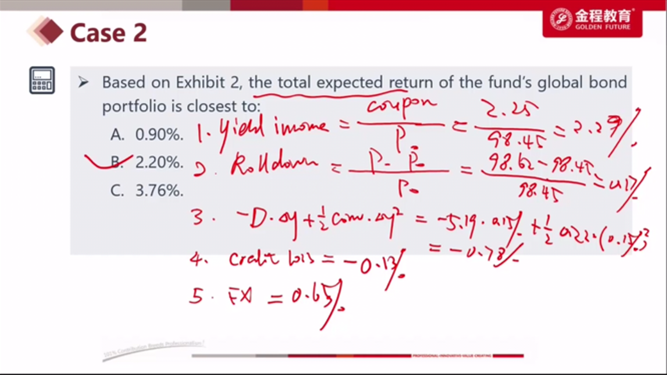 Case 2
金程教育
GOLDEN FUTURE
Based on Exhibit 2, the total expected return of the fund's global bond
portfolio is closest to:
A. 0.90%.
B. 2.20%.
C. 3.76%.
1. Yield income = coupon / P₀ = 2.25 / 98.45 = 2.29%
2. Rolldown = P₁ - P₀ / P₀ = 98.62 - 98.45 / 98.45 = 0.17%
3. -D·Δy + ½ Conv·Δy² = -5.19·0.15% + ½ 0.22·(0.15%)²
= -0.78%
4. Credit loss = -0.13%
5. FX = 0.65%
100% Contribution Breeds Professionalism